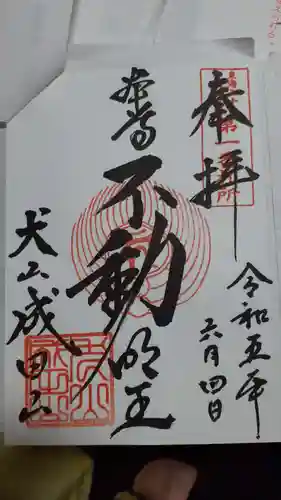 奉拝
令和五年
六月四日
不動明王
犬山成田山